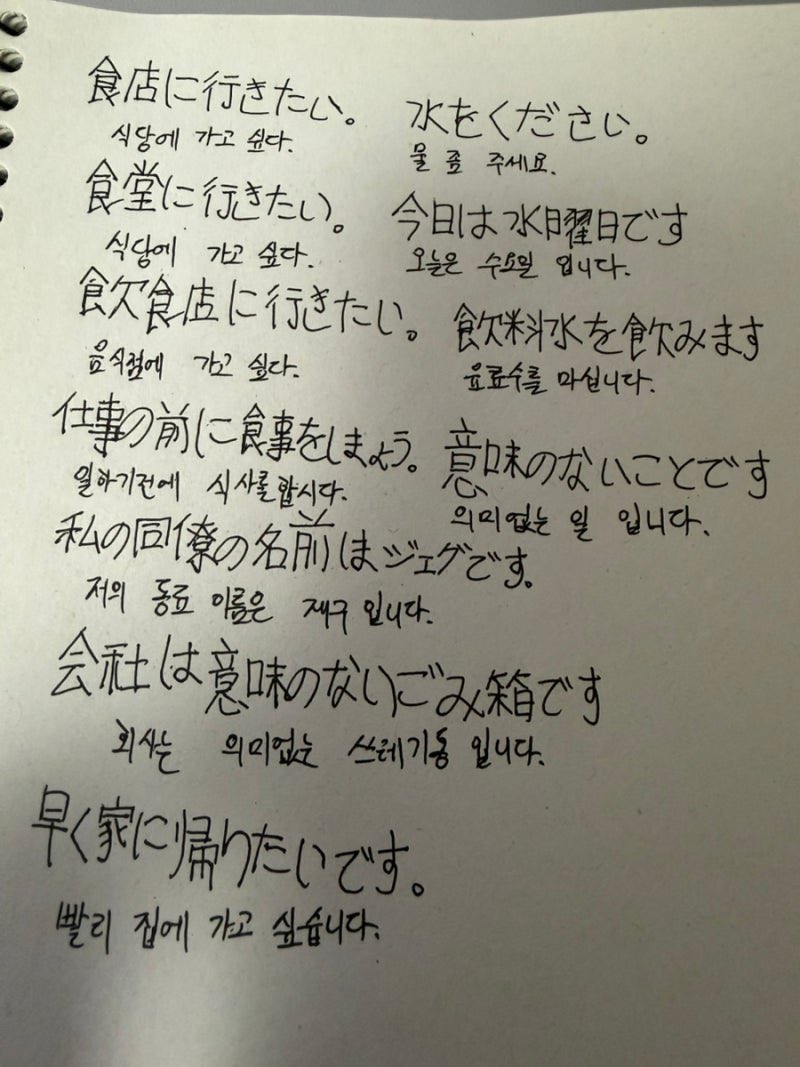 食店に行きたい。
식당에 가고 싶다.
食堂に行きたい。
식당에 가고 싶다.
飲食店に行きたい。
음식점에 가고 싶다.
仕事の前に食事をしましょう。
일하기전에 식사를합시다.
私の同僚の名前はジェグです。
저의 동료 이름은 재구 입니다.
会社は意味のないごみ箱です
회사는 의미없는 쓰레기통 입니다.
早く家に帰りたいです。
빨리 집에 가고 싶습니다.
水をください。
물 좀 주세요.
今日は水曜日です
오늘은 수요일 입니다.
飲料水を飲みます
음료수를 마십니다.
意味のないことです
의미없는 일 입니다.